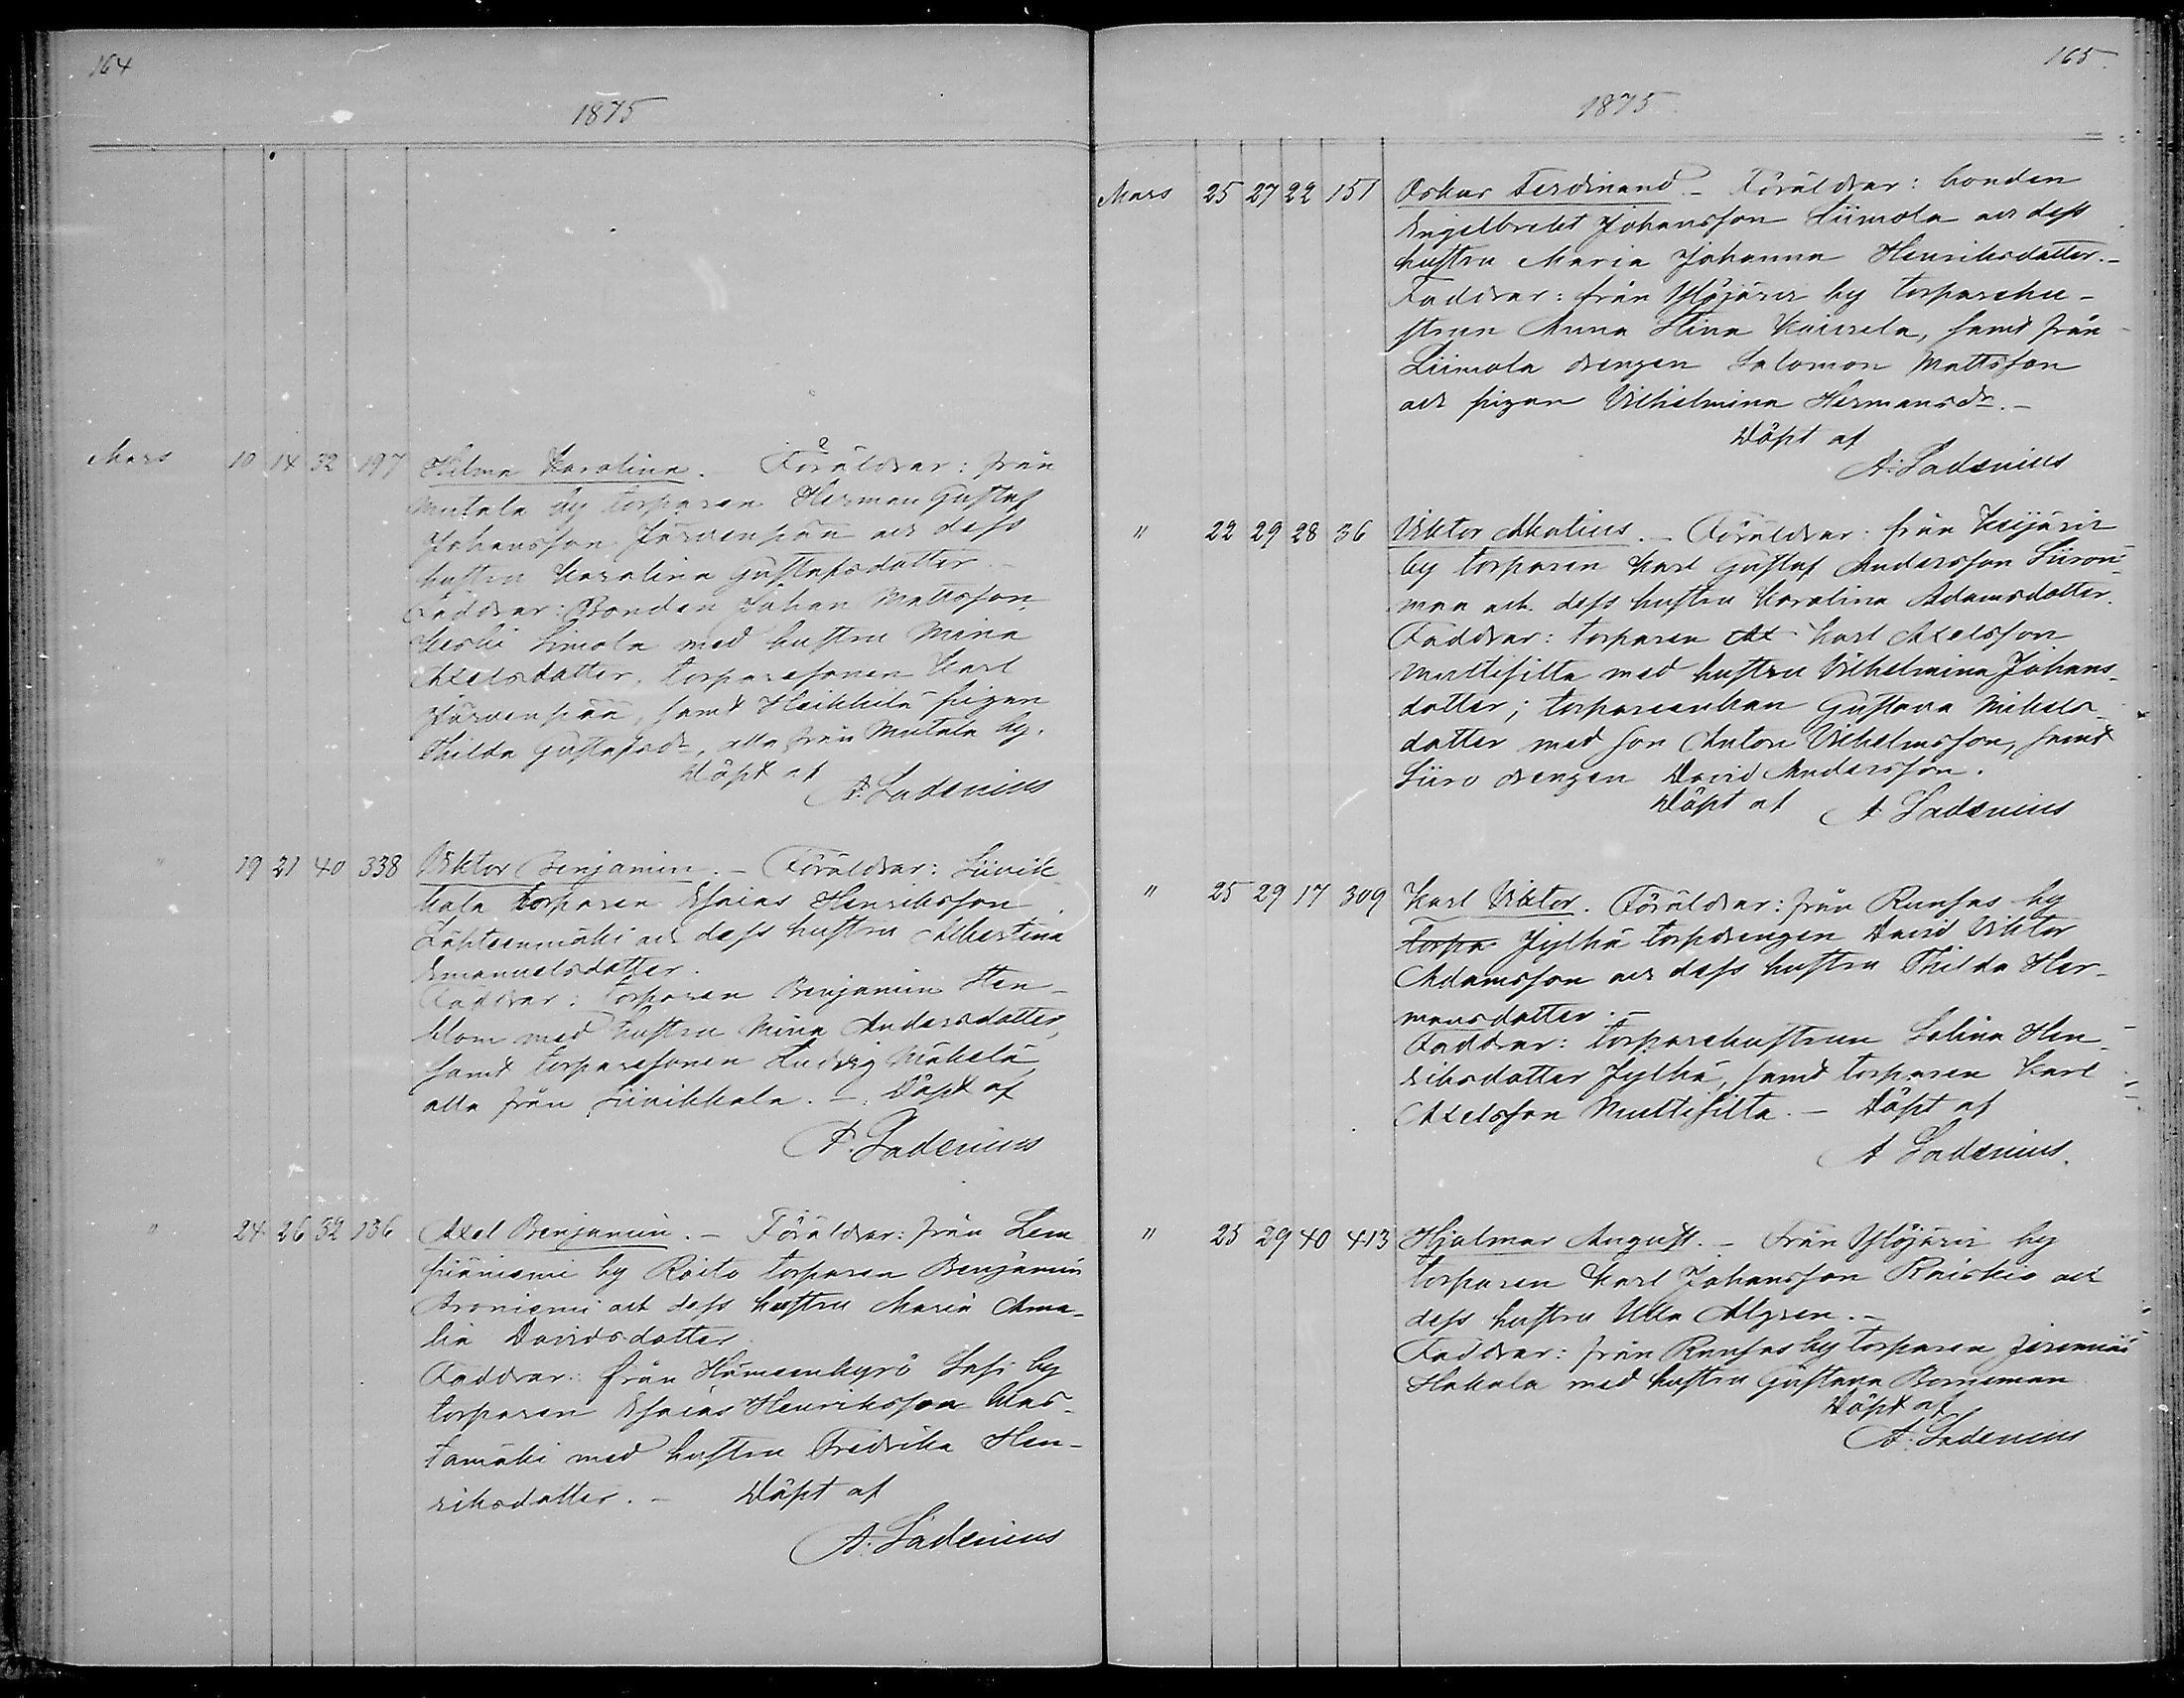 164
1875
Mars 10 14 32 197 Hilma Karolina. Föräldrar: från
Mutala by torparen Herman Gustaf
Johansson Järvenpää och dess
hustru Karolina Gustafsdotter.
Faddrar: Bonden Johan Mattsson
Keski Simola med hustru Mina
Axelsdotter, torparesonen Karl
Järvenpää, samt Heikkilä pigan
Thilda Gustafsdr, alla från Mutala by.
Döpt af
A. Ladenius
" 19 21 40 338 Viktor Benjamin. – Föräldrar: Siivik-
kala torparen Esaias Henriksson
Lähteenmäki och dess hustru Albertina
Emanuelsdotter.
Faddrar: torparen Benjamin Sten-
blom med hustru Mina Andersdotter,
samt torparesonen Ludvig Mäkelä
alla från Siivikkala. – Döpt af
A. Ladenius
" 24 26 32 136 Axel Benjamin. – Föräldrar: från Lem
piäniemi by Roito torparen Benjamin
Aroniemi och dess hustru Maria Ama-
lia Davidsdotter.
Faddrar: från Hämeenkyrö Sasi by
torparen Esaias Henriksson
tamäki med hustru Fredrika Hen-
riksdotter. – Döpt af
A. Ladenius
165.
1875.
Mars 25 27 22 151 Oskar Ferdinand. – Föräldrar: bonden
Engelbrekt Johansson Liimola och dess
hustru Maria Johanna Henriksdotter. –
Faddrar: från Ylöjärvi by torparehu-
strun Anna Stina Kaivela, samt från
Liimola drengen Salomon Mattsson
och pigan Vilhelmina Hermansdr. –
Döpt af
A. Ladenius
" 22 29 28 36 Viktor Akatius. – Föräldrar: från Keijärvi
by torparen Karl Gustaf Andersson Siiron-
maa och dess hustru Karolina Adamsdotter.
Faddrar: torparen Ax Karl Axelsson
Multisilta med hustru Vilhelmina Johans-
dotter; torpareenkan Gustava Mikels-
dotter med son Anton Vilhelmsson, samt
Siiro drengen David Andersson.
Döpt af A Ladenius
" 25 29 17 309 Karl Viktor. Föräldrar: från Runsas by
Torpa Jylhä torpdrengen David Viktor
Adamsson och dess hustru Thilda Her-
mansdotter. –
Faddrar: torparehustrun Selina Hen-
riksdotter Jylhä, samt torparen Karl
Axelsson Multisilta. – Döpt af
A Ladenius.
" 25 29 40 413 Hjalmar August. – Från Ylöjärvi by
torparen Karl Johansson Raiskio och
dess hustru Ulla Algren. –
Faddrar: från Runsas by torparen Jeremias
Hakala med hustru Gustava Borneman
Döpt af
A. Ladenius